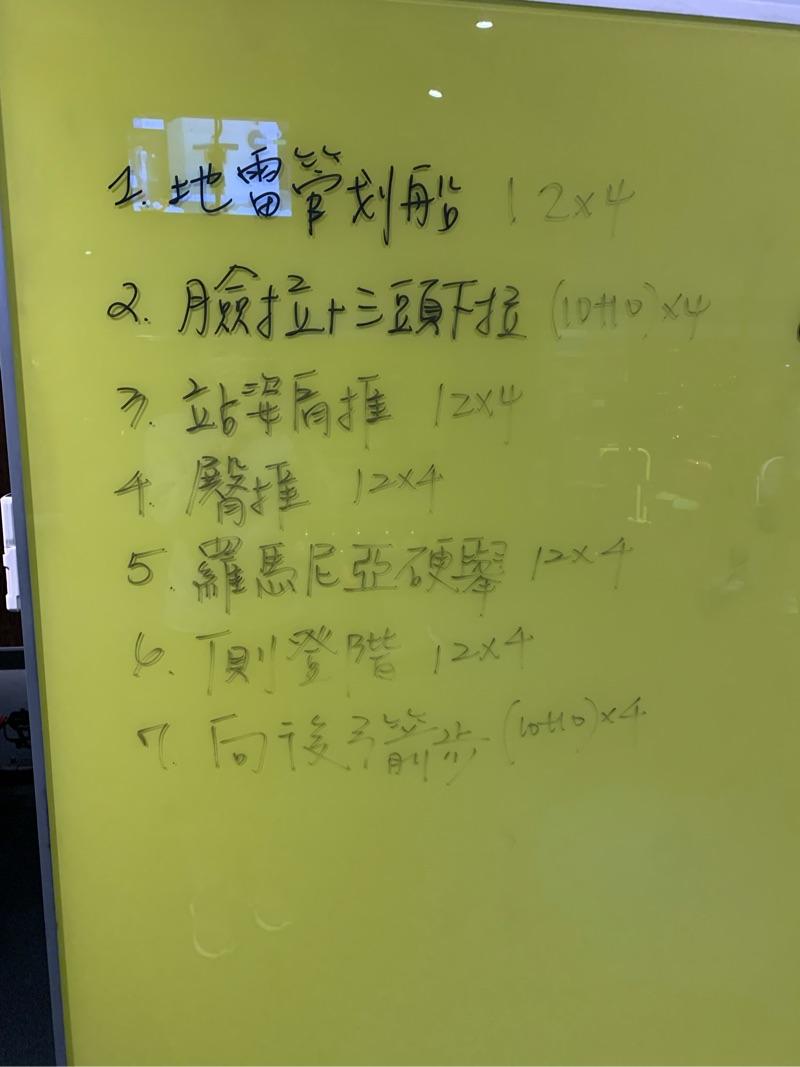 1. 地雷管划船 12x4
2. 臉拉+三頭下拉 (10+10)x4
3. 站姿肩推 12x4
4. 臀推 12x4
5. 羅馬尼亞硬舉 12x4
6. 側登階 12x4
7. 向後弓箭步 (10+10)x4